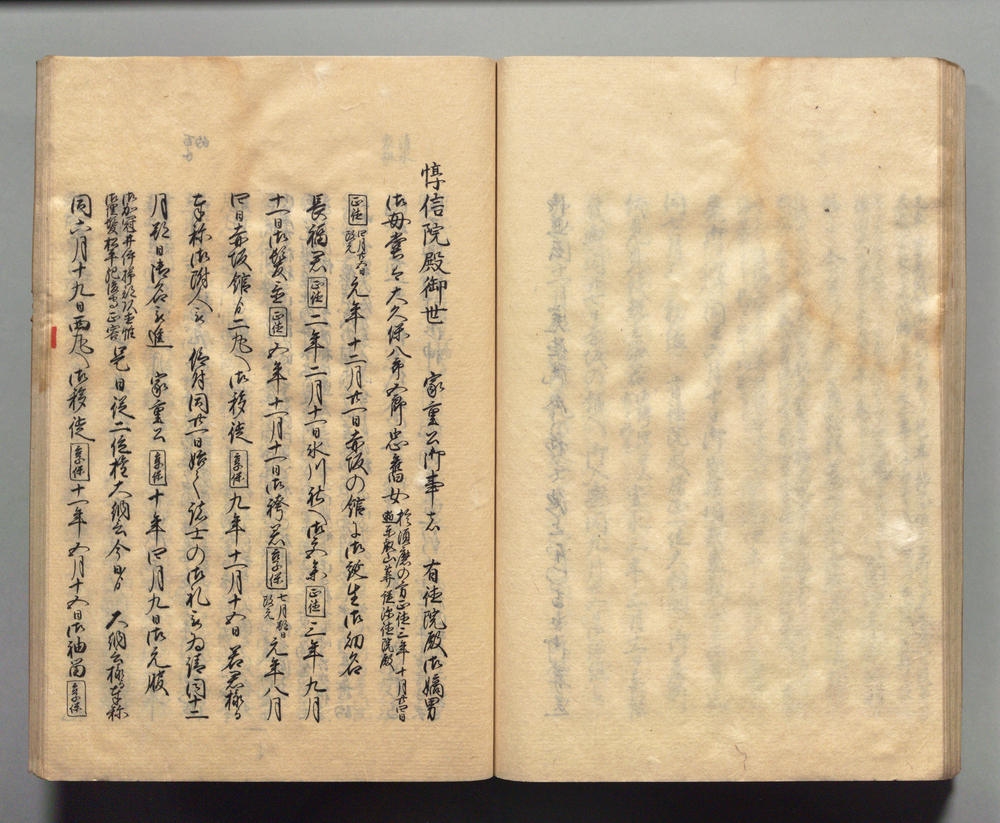 惇信院殿御世 家重公御事者 有徳院殿御嫡男
御母堂者大久保八郎五郎忠舊女 於須磨の方正徳三年十月廿四日
東叡山葬従深徳院殿
正徳 四月廿五日
改元 元年十二月廿一日赤坂の館に御誕生御幼名
長福君 正徳 二年二月十一日氷川社へ御参 正徳 三年九月
十一日御髪置 正徳 五年十一月十一日御袴着 享保 七月
改元 元年八月
四日赤坂館ゟ二丸へ御移徙 享保 九年十一月十五日若君様与
奉称御附人 同廿一日 諸士の御礼 同十二
月朔日御名 進 家重公 享保 十年四月九日御元服
御加冠井伊掃部頭直惟
御理髪松平肥後守正容 是日従二位権大納言今日ゟ 大納言様与奉称
同六月十九日西丸へ御移徙 享保 十一年五月十五日御袖留 享保